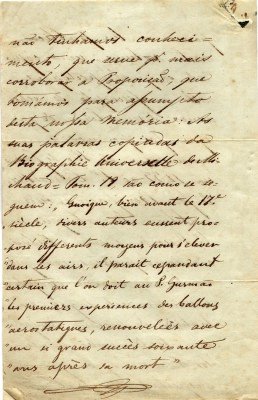 não tenhamos conheci-
mento, que sirva p.ª mais
corroborar a Proposição, que
tomamos para assumpto
desta nossa Memoria. As
suas palavras copiadas da
Biographie Universelle de Mi-
chaud - Tom. 19 são como se se-
guem: "Quoique, bien avant le 17.e
"siècle, divers auteurs eussent pro-
"posé differents moyens pour s'elever
"dans les airs, il parait cependant
"certain que l'on doit au P. Gusmaõ
"les premiers experiences des Ballons
"aerostatiques, renouvelées avec
"un si grand succès soixante
"ans après sa mort"